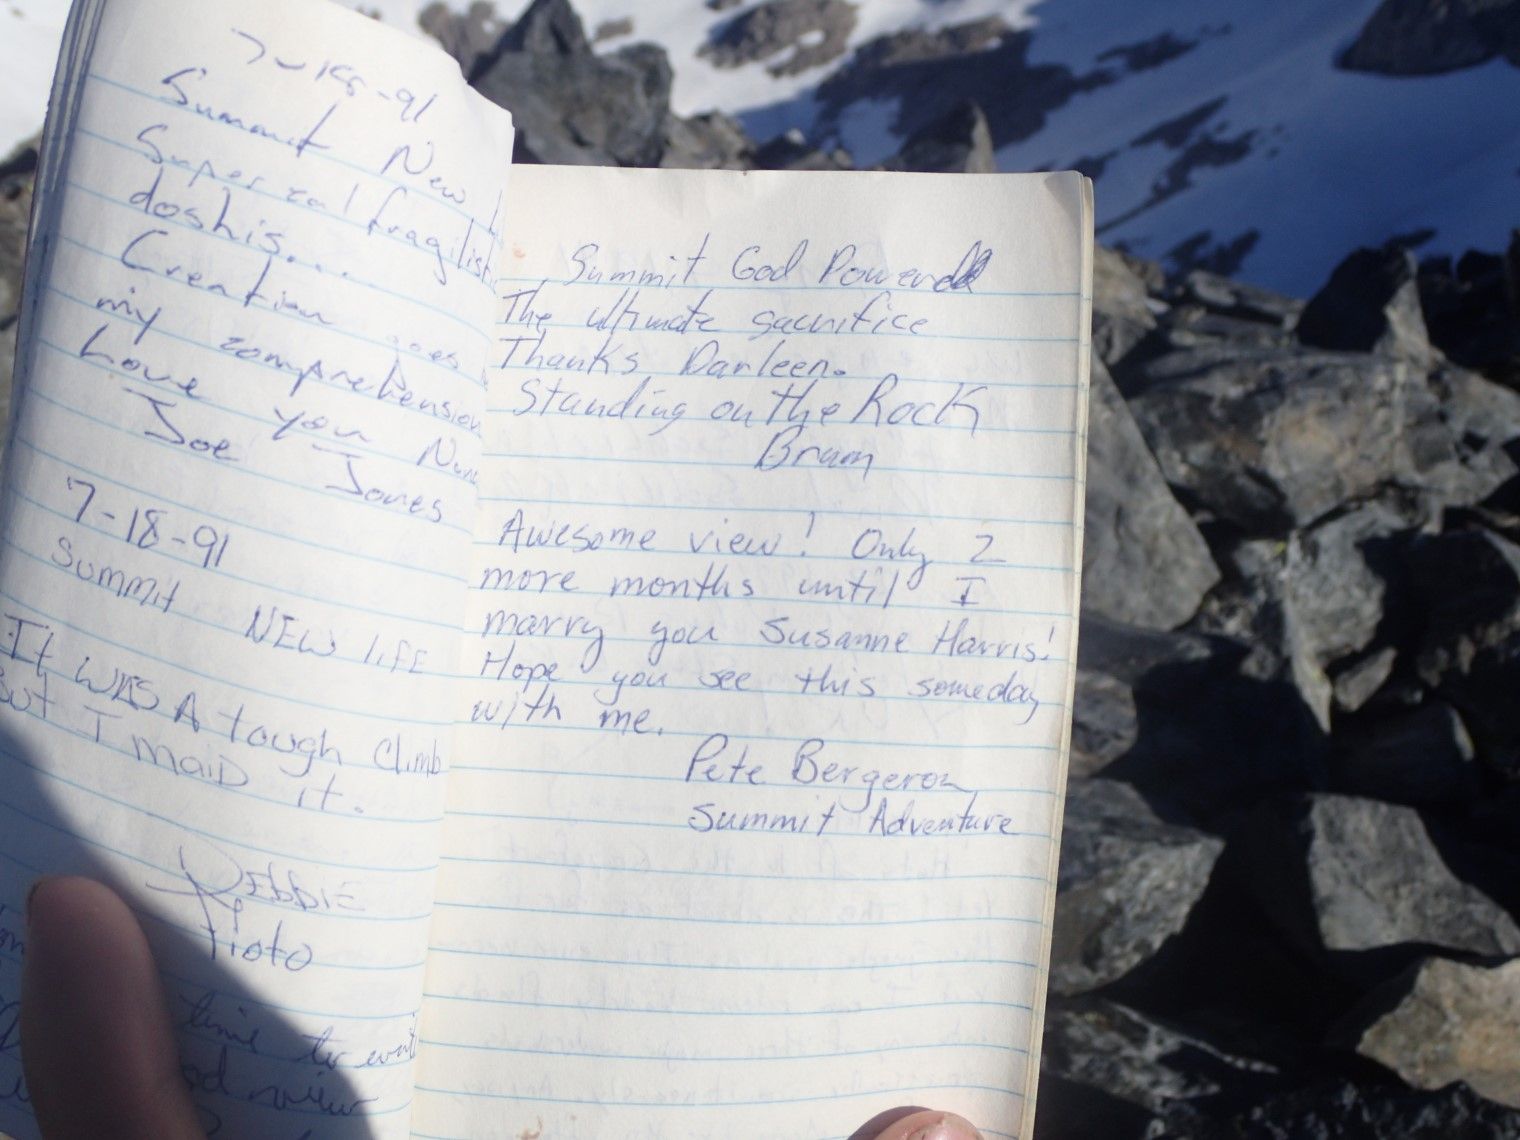 7-18-91
Summit New
Supercalfragilistic
doshis....
Creation goes
my comprehension
Love you
Joe Jones
7-18-91
Summit NEW lifE
It WAS A tough Climb
But I maiD it.
DEbbiE
time to
view
Summit God Powered
The ultimate sacrifice
Thanks Darleen.
Standing on the Rock
Bram
Awesome view! Only 2
more months until I
marry you Susanne Harris!
Hope you see this someday
with me.
Pete Bergeron
Summit Adventure